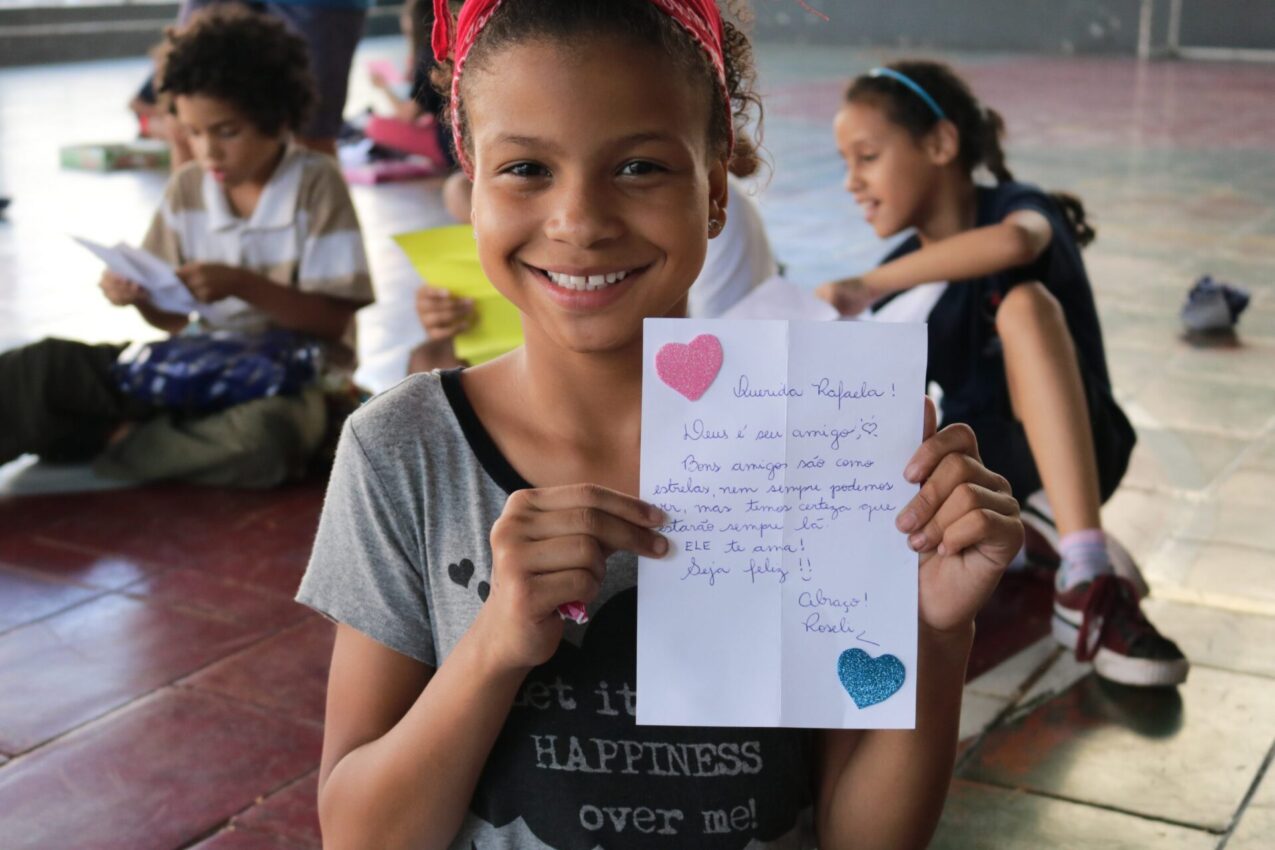 Querida Rafaela!
Deus é seu amigo,
Bons amigos são como
estrelas, nem sempre podemos
ver, mas temos certeza que
estarão sempre lá.
ELE te ama!
Seja feliz!!
Abraço!
Roseli
Let it
HAPPINESS
over me!